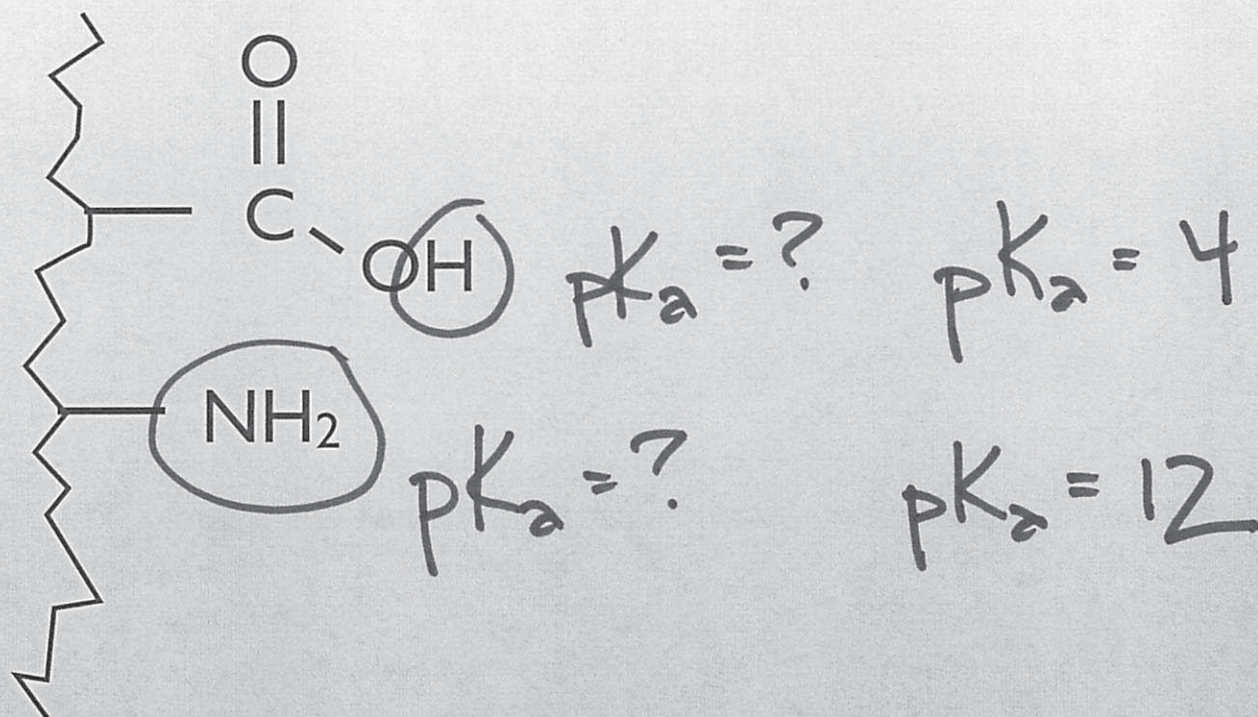 O
||
C
OH pKa = ? pKa = 4
NH2 pKa = ? pKa = 12